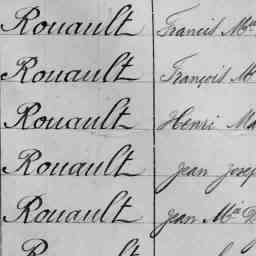 Rouault Francis Ma
Rouault François M
Rouault Henri Ma
Rouault Jean Josep
Rouault Jean Mie